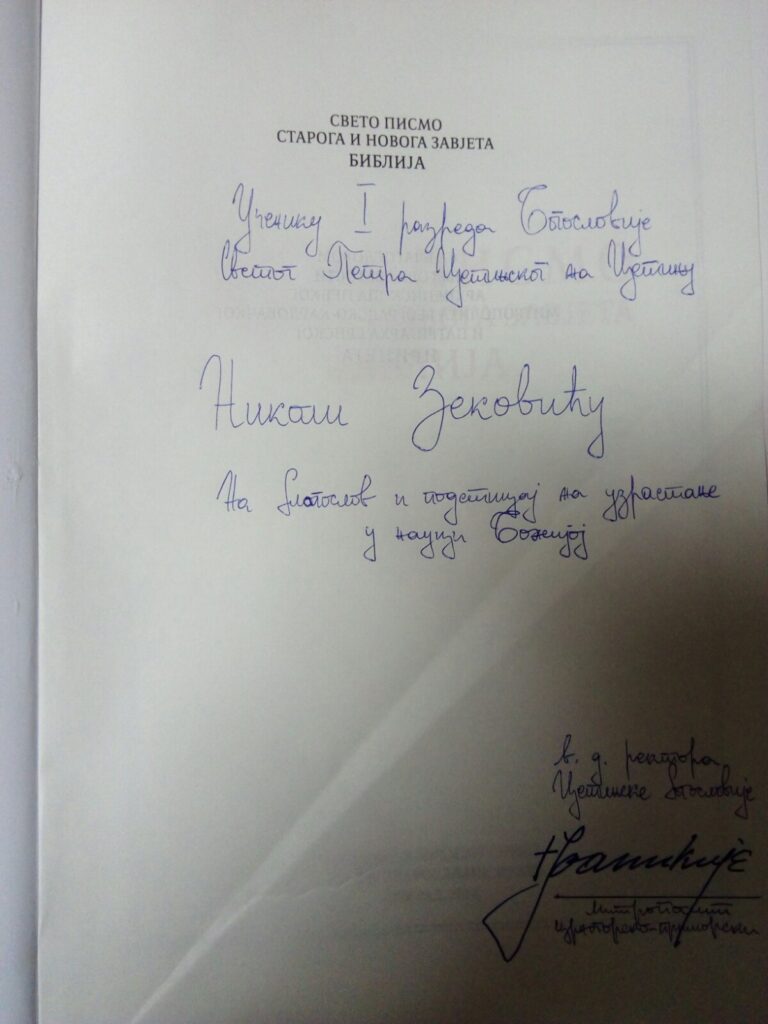 СВЕТО ПИСМО
СТАРОГА И НОВОГА ЗАВЈЕТА
БИБЛИЈА
Ученику I разреда Богословије
Светог Петра Цетињског на Цетињу
Николи Зековићу
На благослов и подстицај на узрастање
у науци Божијој
в. д. ректора
Цетињске богословије
+Јоаникије
Митрополит
црногорско-приморски